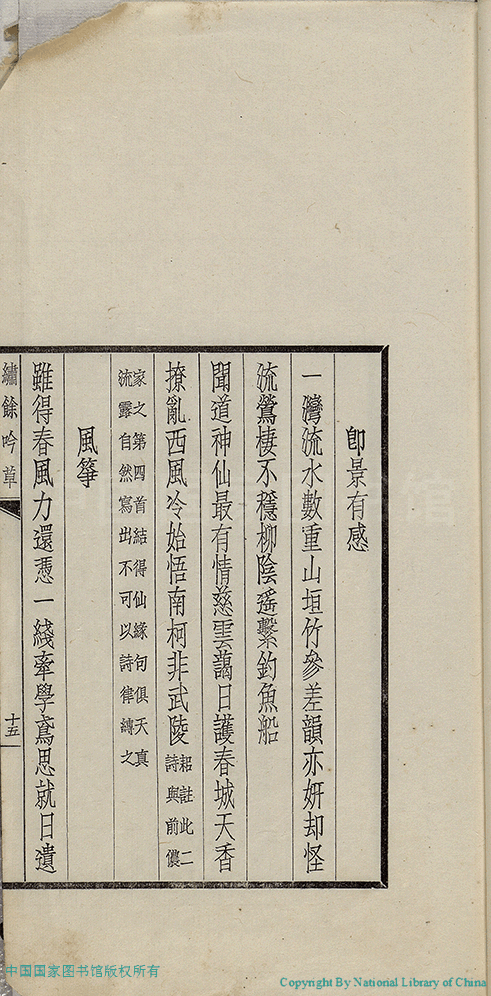 即景有感
一灣流水數重山垣竹參差韻亦妍却怪
流鶯棲不穩柳陰遥繫釣魚船
聞道神仙最有情慈雲藹日護春城天香
撩亂西風冷始悟南柯非武陵軺註此二
詩與前儂
家之第四首結得仙緣句俱天真
流露自然寫出不可以詩律縳之
風箏
雖得春風力還憑一綫牽學鳶思就日遺
繡餘吟草
十五
中国国家图书馆版权所有
Copyright By National Library of China